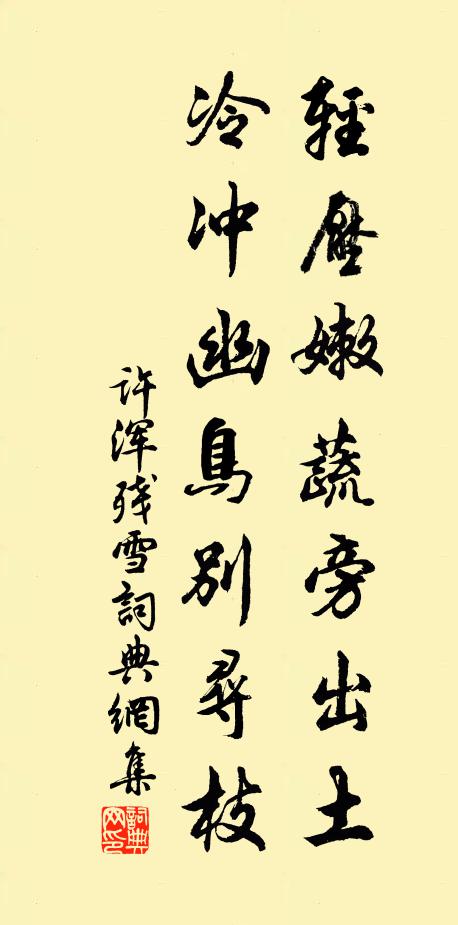 輕壓嫩蔬旁出土
冷冲幽鳥別尋枝
许渾残雪詞典網集
詞典网印